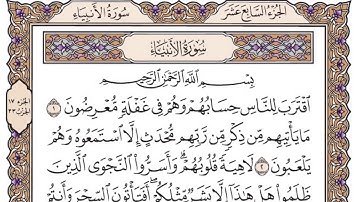 سُورَةُ الأَنبِيَاءِ
الجُزْءُ السَّابِعَ عَشَرَ
سُورَةُ الأَنبِيَاءِ
بِسْمِ اللَّهِ الرَّحْمَٰنِ الرَّحِيمِ
اقْتَرَبَ لِلنَّاسِ حِسَابُهُمْ وَهُمْ فِي غَفْلَةٍ مُّعْرِضُونَ ١
مَا يَأْتِيهِم مِّن ذِكْرٍ مِّن رَّبِّهِم مُّحْدَثٍ إِلَّا اسْتَمَعُوهُ وَهُمْ
يَلْعَبُونَ ٢ لَاهِيَةً قُلُوبُهُمْ وَأَسَرُّوا النَّجْوَى الَّذِينَ
ظَلَمُوا هَلْ هَٰذَا إِلَّا بَشَرٌ مِّثْلُكُمْ أَفَتَأْتُونَ السِّحْرَ وَأَنتُمْ
الجزء ١٧